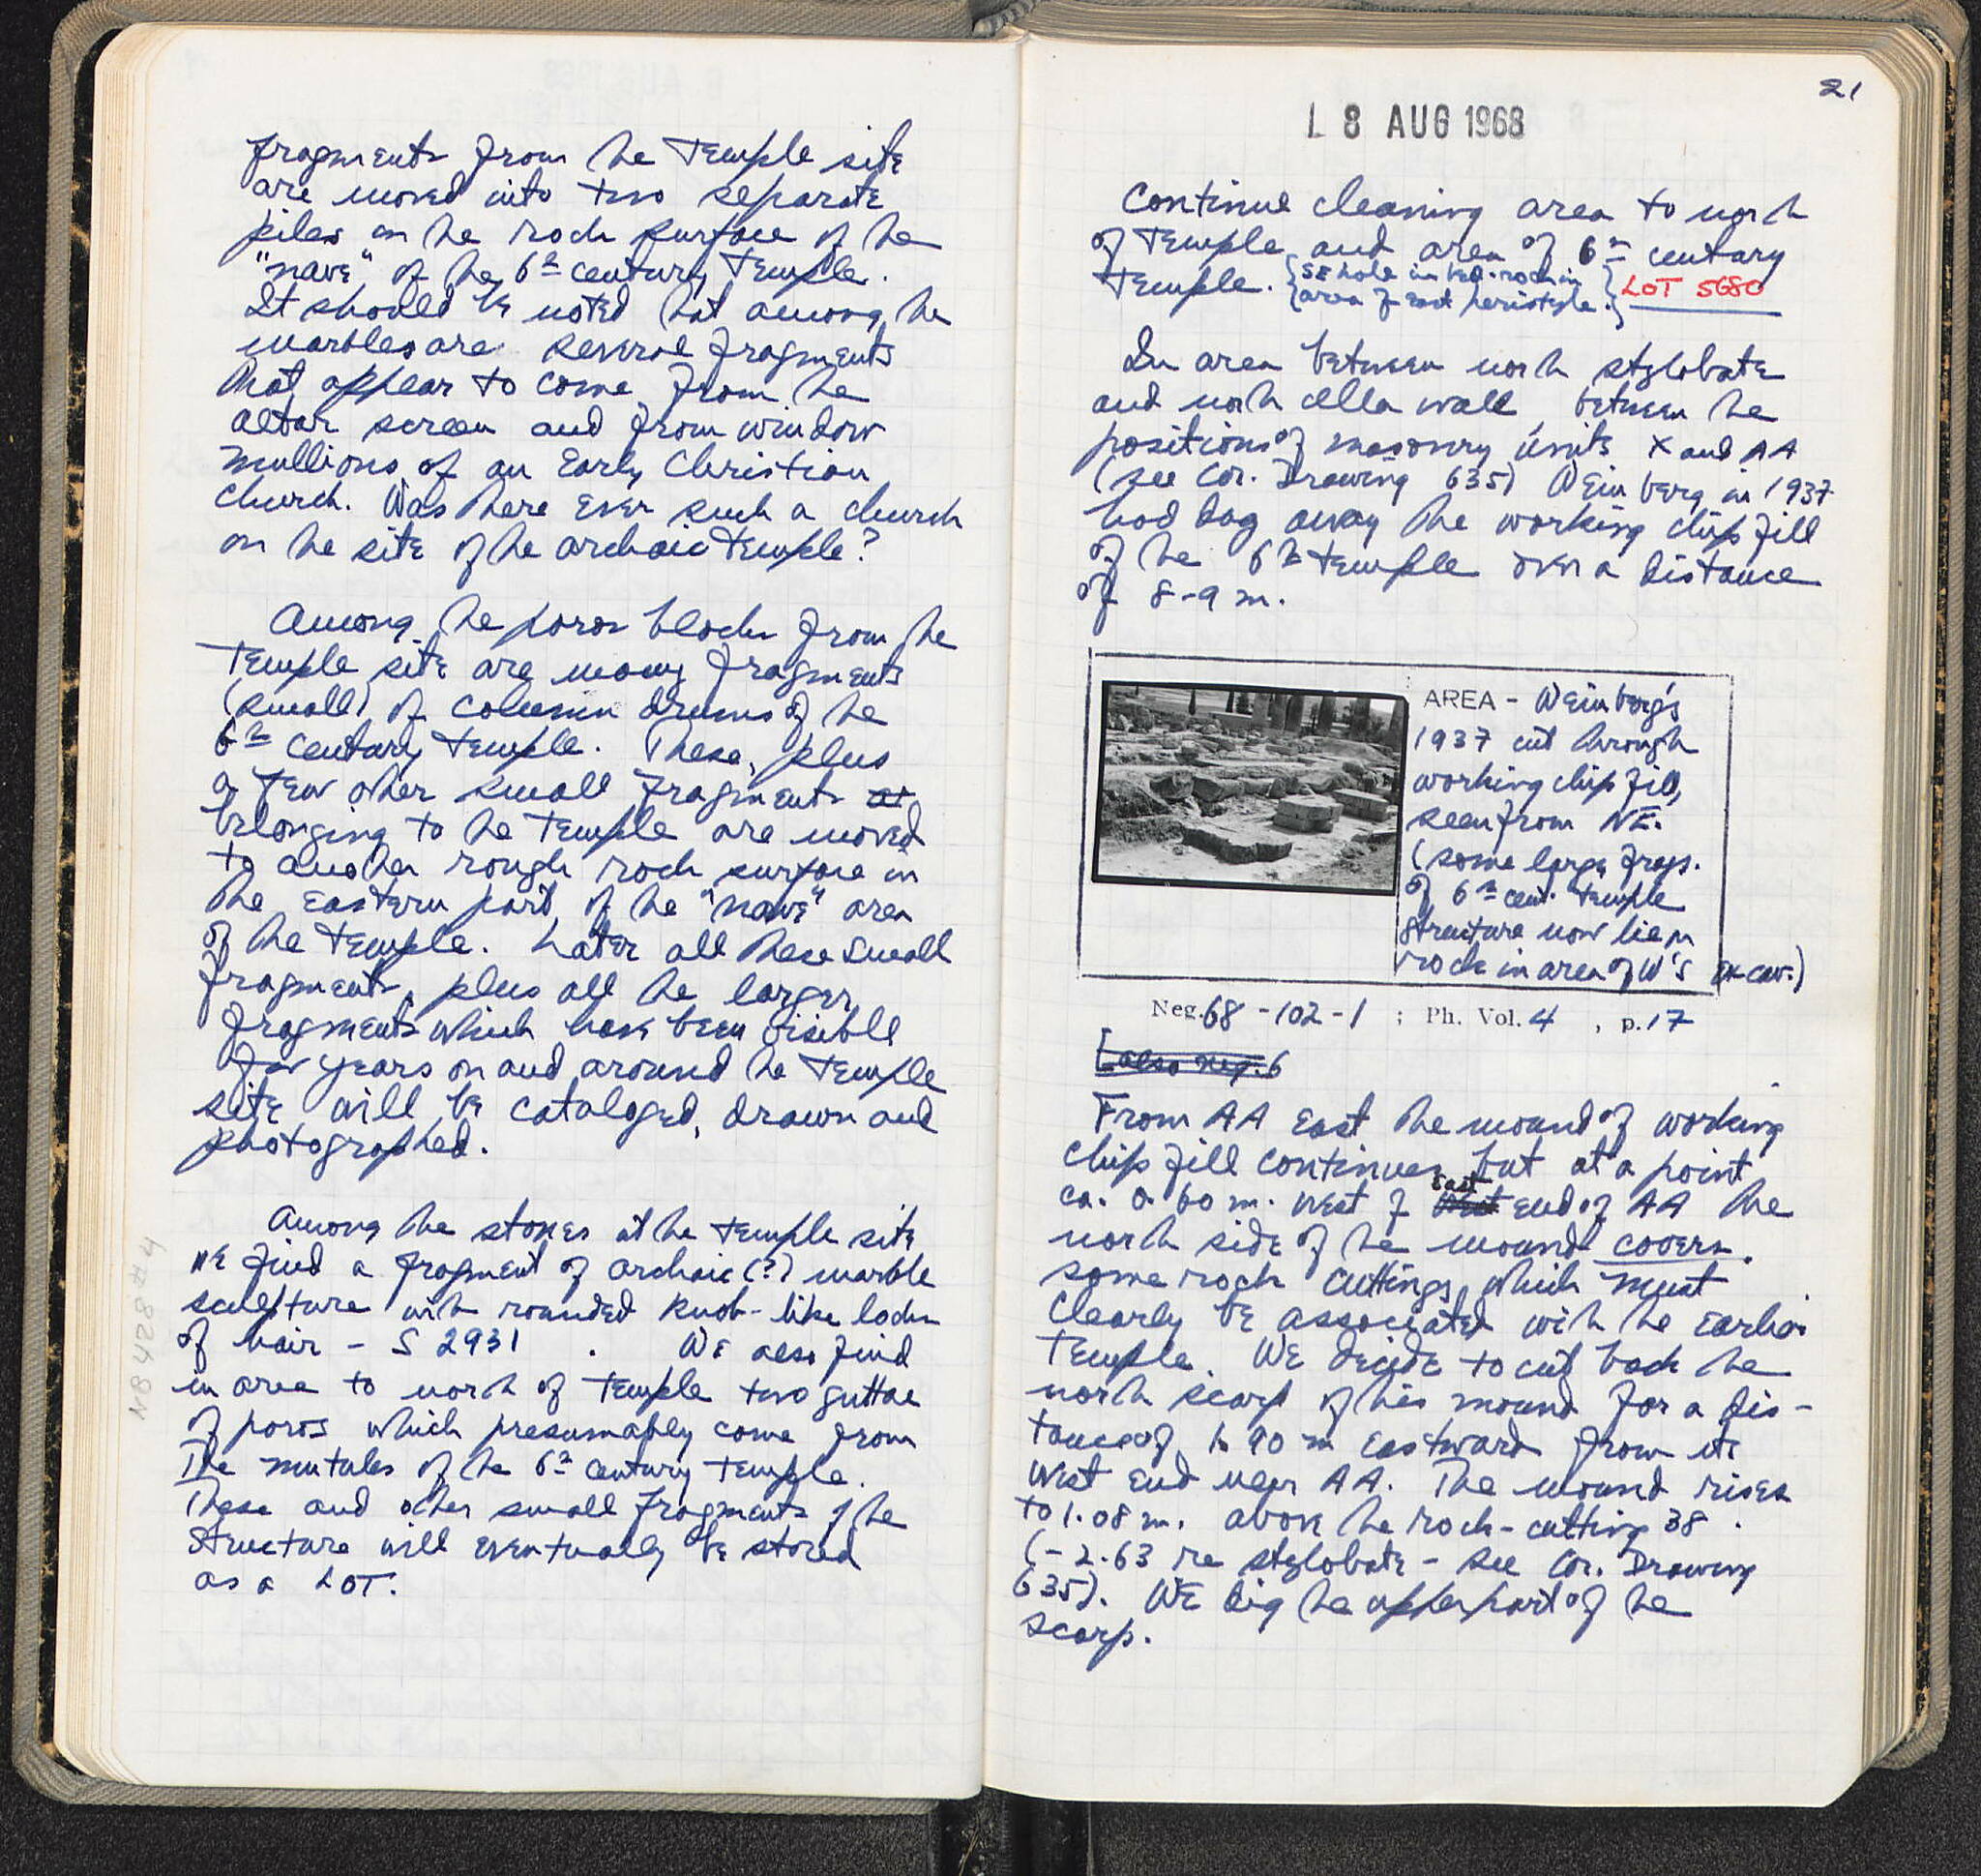 fragments from the Temple site
are moved into two separate
piles on the rock surface of the
"nave" of the 6th century Temple.
It should be noted that among the
marbles are several fragments
that appear to come from the
altar screen and from window
mullions of an Early Christian
church. Was there ever such a church
on the site of the archaic Temple?
Among the poros blocks from the
Temple site are many fragments
(small) of column drums of the
6th century Temple. These, plus
a few other small fragments at
belonging to the Temple are moved
to another rough rock surface in
the Eastern part of the "nave" area
of the Temple. Later all these small
fragments, plus all the larger
fragments which have been visible
for years on and around the Temple
site will be cataloged, drawn and
photographed.
Among the stones at the Temple site
we find a fragment of archaic (?) marble
sculpture with rounded knob-like locks
of hair - S 2931 . We also find
in area to north of Temple two guttae
of poros which presumably come from
the mutules of the 6th century Temple.
These and other small fragments of the
structure will eventually be stored
as a LOT.
NB 428 #4
21
18 AUG 1968
Continue cleaning area to north
of Temple and area of 6th century
Temple. {SE hole in bed-rock in
area of east peristyle.} LOT 5680
In area between north stylobate
and north cella wall, between the
positions of masonry units X and AA
(see Cor. Drawing 635) Weinberg in 1937
had dug away the working chips fill
of the 6th Temple over a distance
of 8-9 m.
AREA - Weinberg's
1937 cut through
working chip fill,
seen from NE.
(some large frags.
of 6th cent. Temple
structure now lie on
rock in area of W's excav.)
Neg. 68-102-1 ; Ph. Vol. 4 , p. 17
[also neg. 6
From AA East the mound of working
chips fill continues but at a point
ca. 0.60 m. west of East end of AA the
north side of the mound covers
some rock cuttings, which must
clearly be associated with the Earlier
Temple. We decide to cut back the
north scarp of this mound for a dis-
tance of 1.90 m Eastward from its
West end near AA. The mound rises
to 1.08 m. above the rock-cutting 38
(-2.63 re stylobate - see Cor. Drawing
635). We dig the upper part of the
scarp.